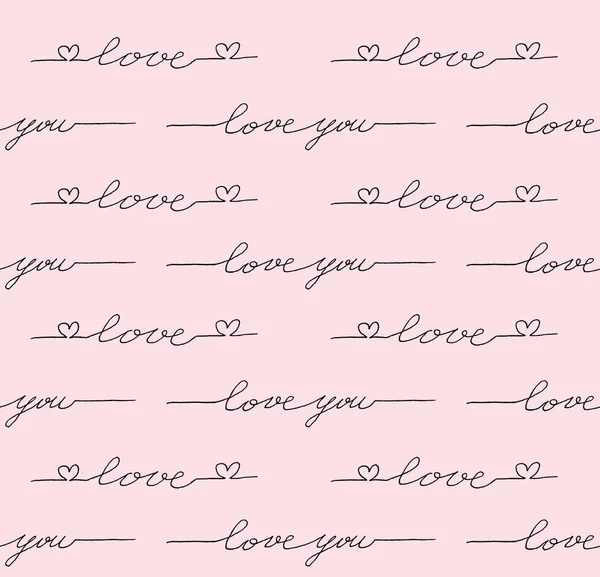 love love
you love you love
love love
you love you love
love love
you love you love
love love
you love you love